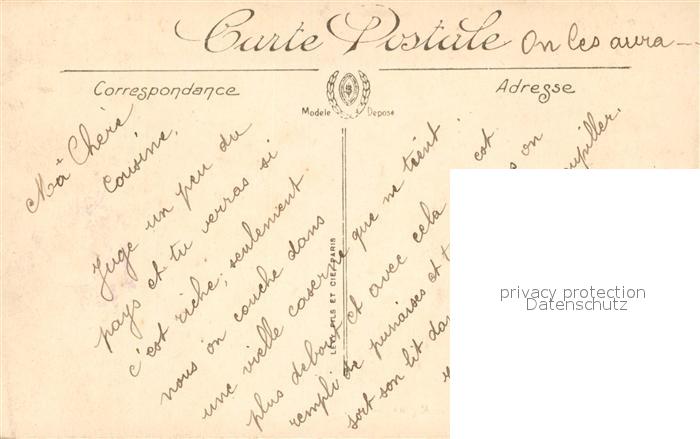 Carte Postale
On les aura --
Correspondance
Adresse
Modele Deposé
LEVY FILS ET CIE, PARIS
Ma Chère
Cousine,
Juge un peu du
pays et tu verras si
c'est riche, seulement
nous on couche dans
une vielle caserne que ne tient
plus debout et avec cela
rempli de punaises et
sort son lit
est
on
privacy protection
Datenschutz